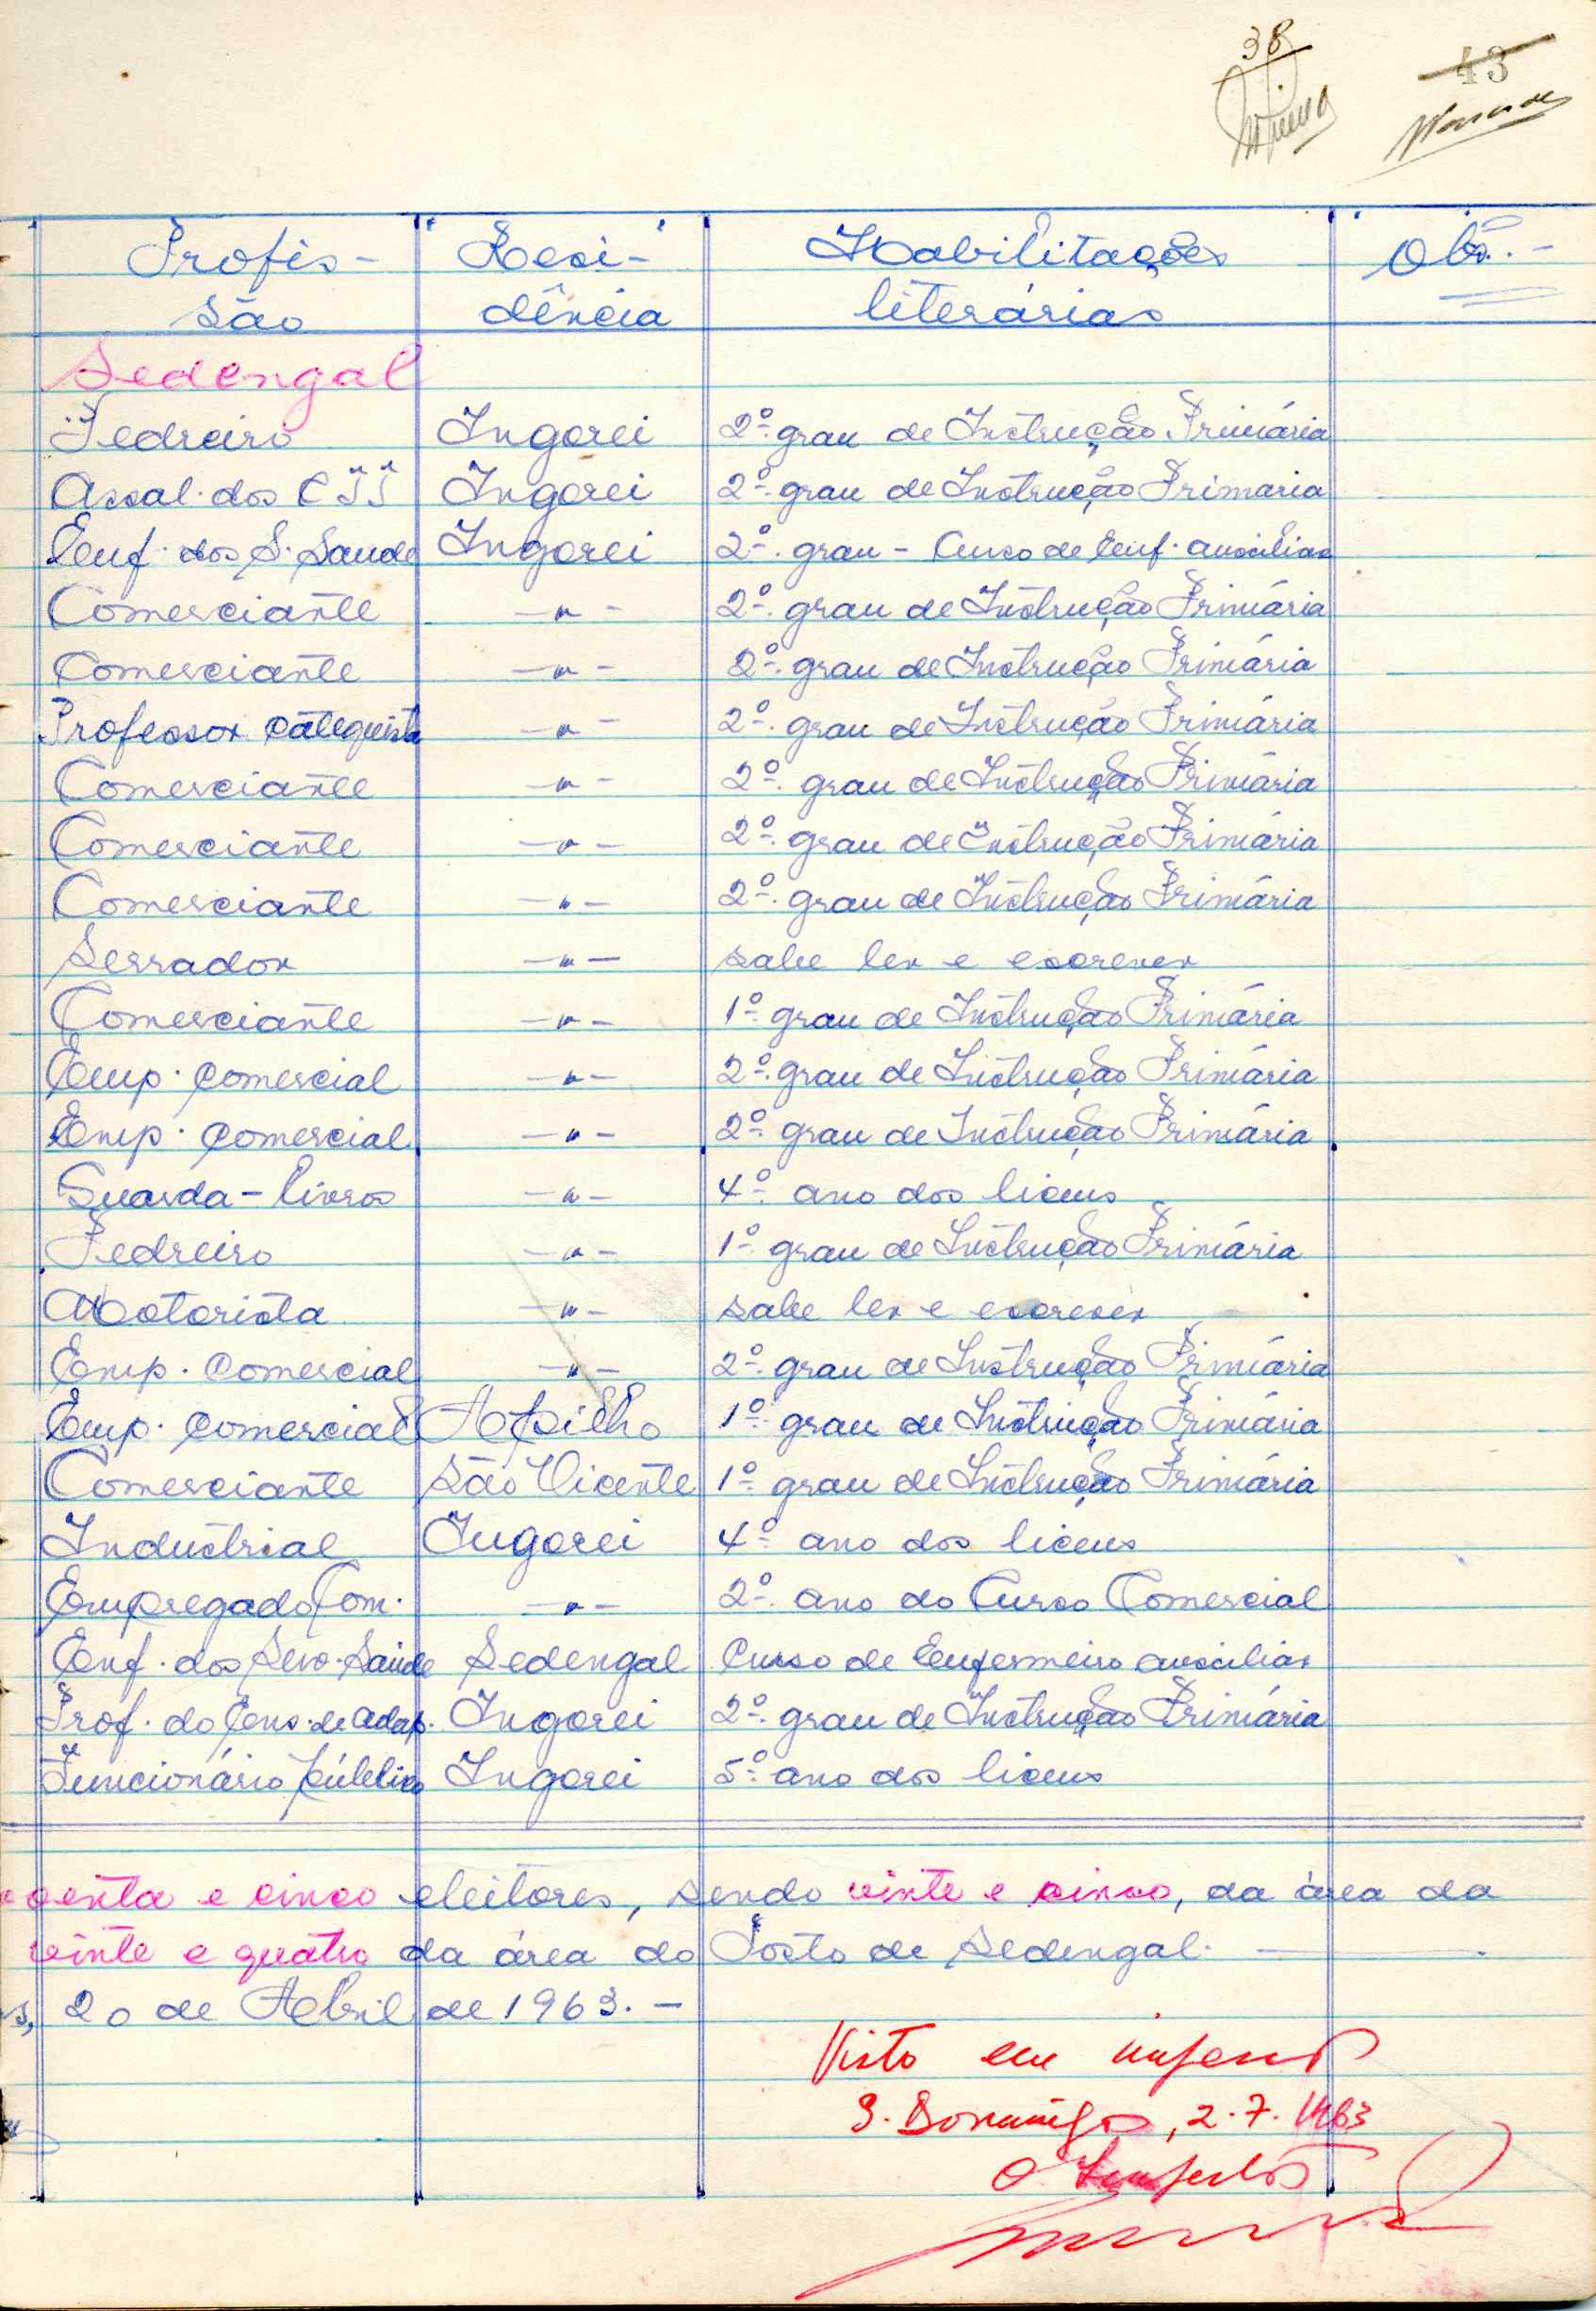 38
43
Profis- Resi- Habilitações Obs.-
são dência literárias
Sedengal
Pedreiro Ingorei 2º. grau de Instrução Primária
Assal. dos CTT Ingorei 2º. grau de Instrução Primaria
Enf. dos S. Saude Ingorei 2º. grau - Curso de Enf. auxiliar
Comerciante —"— 2º. grau de Instrução Primária
Comerciante —"— 2º. grau de Instrução Primária
Professor catequista —"— 2º. grau de Instrução Primária
Comerciante —"— 2º. grau de Instrução Primária
Comerciante —"— 2º. grau de Instrução Primária
Comerciante —"— 2º. grau de Instrução Primária
Serrador —"— sabe ler e escrever
Comerciante —"— 1º. grau de Instrução Primária
Emp. comercial —"— 2º. grau de Instrução Primária
Emp. comercial —"— 2º. grau de Instrução Primária
Guarda-livros —"— 4º. ano dos liceus
Pedreiro —"— 1º. grau de Instrução Primária
Motorista —"— sabe ler e escrever
Emp. comercial —"— 2º. grau de Instrução Primária
Emp. comercial Apilho 1º. grau de Instrução Primária
Comerciante São Vicente 1º. grau de Instrução Primária
Industrial Ingorei 4º. ano dos liceus
Empregado Com. —"— 2º. ano do Curso Comercial
Enf. dos Serv. Saúde Sedengal Curso de Enfermeiro auxiliar
Prof. do Ens. de Adap. Ingorei 2º. grau de Instrução Primária
Funcionário público Ingorei 5º. ano dos liceus
enta e cinco eleitores, sendo vinte e cinco, da área da
vinte e quatro da área do Posto de Sedengal. —
s, 20 de Abril de 1963. —
Visto em
S. Domingos, 2.7.1963
O Inspector